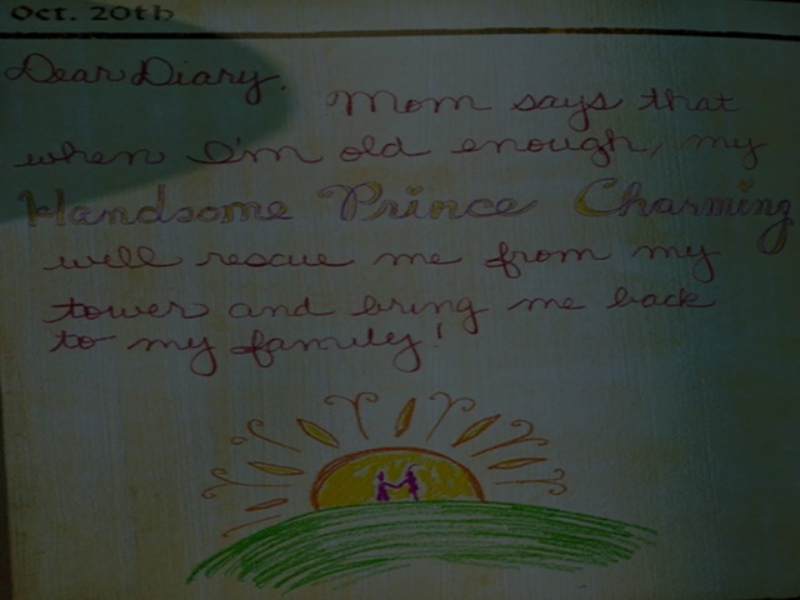 Oct. 20th
Dear Diary,
Mom says that
when I'm old enough, my
Handsome Prince Charming
will rescue me from my
tower and bring me back
to my family!